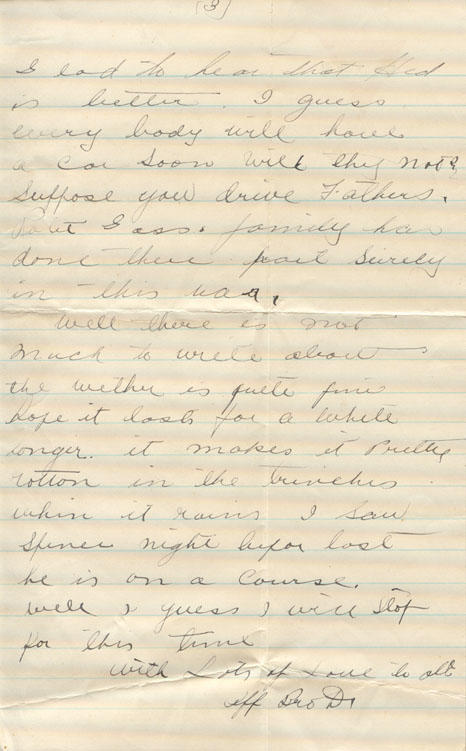 (3)
Glad to hear that
is better. I guess
every body will have
a car soon will they not?
Suppose you drive Fathers.
family has
done there part surely
in this war.
Well there is not
much to write about
the wether is quite fine
hope it lasts for a while
longer. it makes it Pretty
rotton in the trenches
when it rains I saw
night befor last
he is on a course.
Well I guess I will Stop
for this time
With Lots of Love to all
Bro D